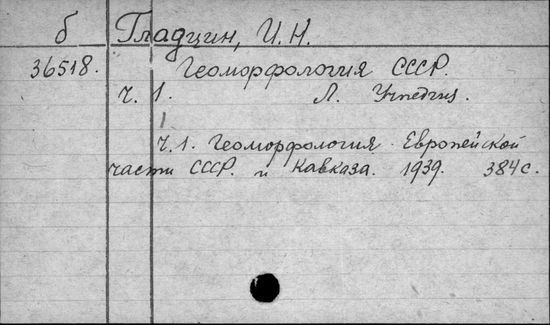 б Гладцин, И.Н.
36518. Геоморфология СССР.
ч. 1. Л. Учпедгиз.
ч.1. Геоморфология Европейской
части СССР. и Кавказа. 1939. 384 с.